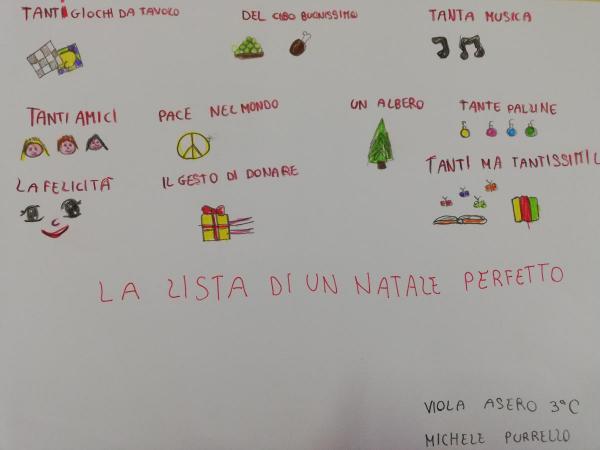 TANTI GIOCHI DA TAVOLO
DEL CIBO BUONISSIMO
TANTA MUSICA
TANTI AMICI
PACE NEL MONDO
UN ALBERO
TANTE PALLINE
LA FELICITÀ
IL GESTO DI DONARE
TANTI MA TANTISSIMI L
LA LISTA DI UN NATALE PERFETTO
VIOLA ASERO 3°C
MICHELE PURRELLO